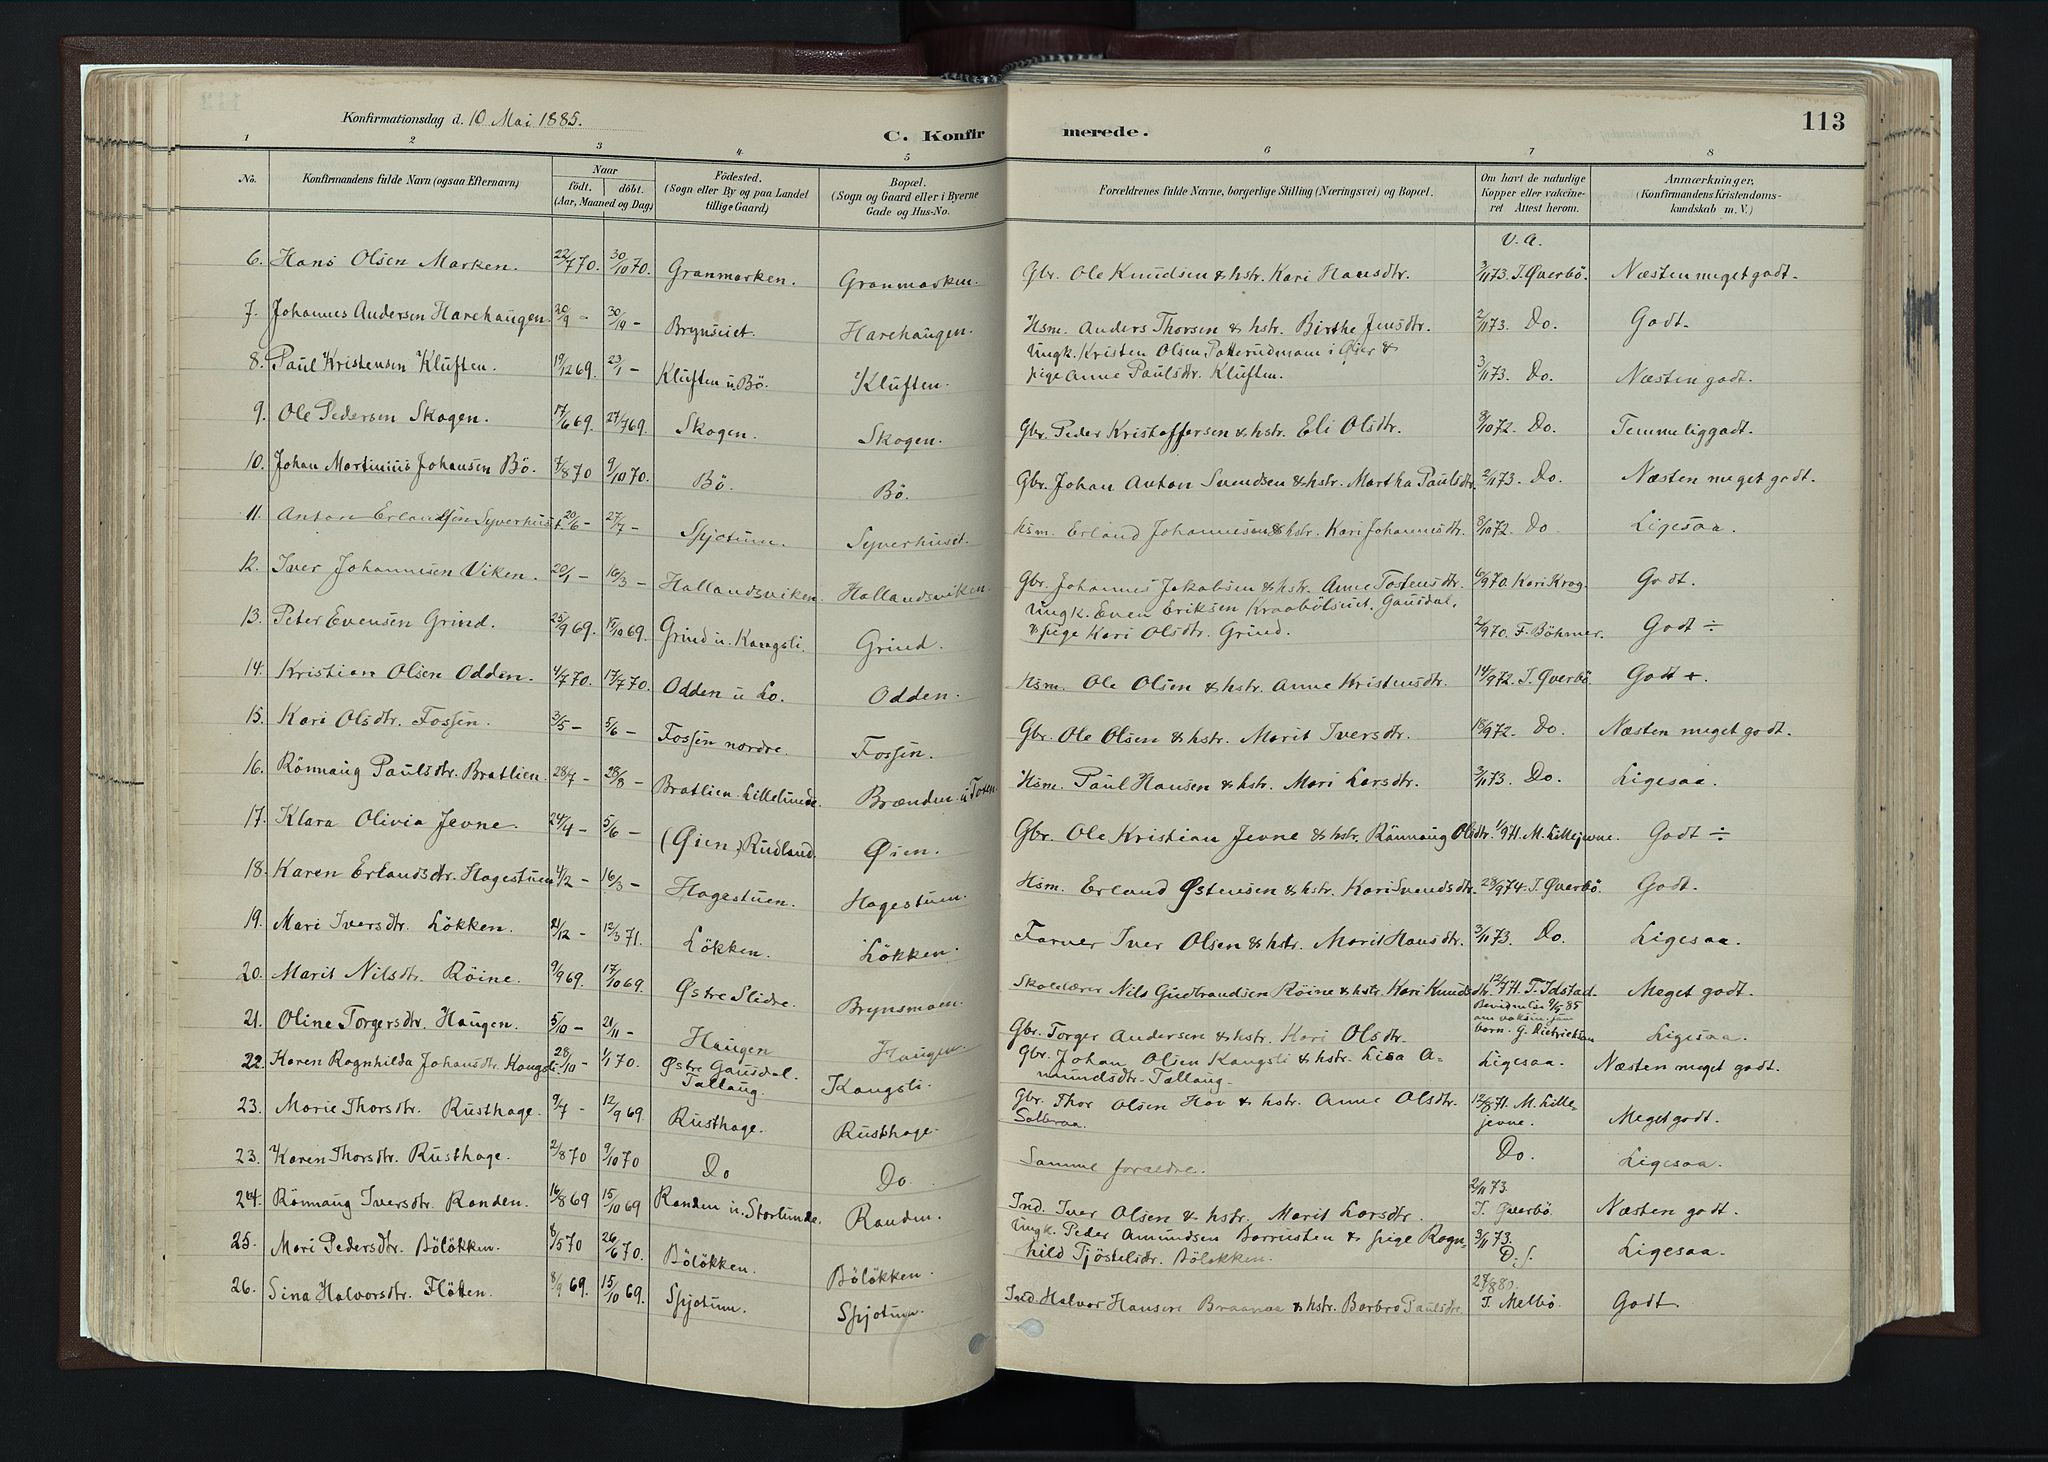 113
Konfirmationsdag d. 10 Mai 1885.
C. Konfirmerede.
1 2 3 4 5 6 7 8
No. | Konfirmandens fulde Navn (ogsaa Efternavn) | Naar födt. döbt. (Aar, Maaned og Dag) | Födested. (Sogn eller By og paa Landet tillige Gaard) | Bopæl. (Sogn og Gaard eller i Byerne Gade og Hus-No. | Forældrenes fulde Navne, borgerlige Stilling (Næringsvei) og Bopæl. | Om havt de naturlige Kopper eller vakcineret Attest herom. | Anmærkninger, (Konfirmandens Kristendomskundskab m. V.)
V. A.
6. Hans Olsen Marken. 22/7 70. 30/10 70. Granmarken. Granmarken. Gbr. Ole Knudsen & hstr. Kari Hansdtr. 3/11 73. T. Øverbö. Næsten meget godt.
7. Johannes Andersen Harehaugen. 20/9 - 30/10 - Brynsviet. Harehaugen. Hsm. Anders Thorsen & hstr. Birthe Jensdtr. 2/11 73. Do. Godt.
8. Paul Kristensen Kluften. 19/12 69. 23/1 - Kluften u. Bö. Kluften. Ungk. Kristen Olsen i Øier &
pige Anne Paulsdtr. Kluften. 3/11 73. Do. Næsten godt.
9. Ole Pedersen Skogen. 17/6 69. 27/7 69. Skogen. Skogen. Gbr. Peder Kristoffersen & hstr. Eli Olsdtr. 8/10 72. Do. Temmelig godt.
10. Johan Martinius Johansen Bö. 7/8 70 9/10 70. Bö. Bö. Gbr. Johan Anton Svendsen & hstr. Martha Paulsdtr. 2/11 73. Do. Næsten meget godt.
11. Anton Erlandsen Syverhuset. 20/6 - 27/7 - Spjotum. Syverhuset. Hsm. Erland Johannesen & hstr. Kari Johannesdtr. 8/10 72. Do Ligesaa.
12. Iver Johannesen Viken. 20/1 - 16/3 - Hallandsviken. Hallandsviken. Gbr. Johannes Jakobsen & hstr. Anne Tostensdtr. 6/9 70. Kari Krog. Godt.
13. Peter Evensen Grind. 25/9 69. 17/10 69. Grind u. Kangsli. Grind. Ungk. Even Eriksen Kraabölsviet, Gausdal,
& pige Kari Olsdtr. Grind. 2/9 70. F. Böhmer. Godt ÷
14. Kristian Olsen Odden. 4/7 70. 17/7 70. Odden u Lo. Odden. Hsm. Ole Olsen & hstr. Anne Kristensdtr. 14/9 72. T. Øverbö. Godt +.
15. Kari Olsdtr. Fossen. 3/5 - 5/6 - Fossen nordre. Fossen. Gbr. Ole Olsen & hstr. Marit Iversdtr. 18/9 72. Do. Næsten meget godt.
16. Rönnaug Paulsdtr. Bratlien. 28/7 - 28/8 - Bratlien. Lillelunde. Brænden u Toten. Hsm. Paul Hansen & hstr. Mari Larsdtr. 3/11 73. Do. Ligesaa.
17. Klara Olivia Jevne. 24/4 - 5/6 - (Øien) Rudland. Øien. Gbr. Ole Kristian Jevne & hstr. Rönnaug Olsdtr. 1/9 71. M. Lillejevne. Godt ÷
18. Karen Erlandsdtr. Hagestuen 4/2 - 16/3 - Hagestuen. Hagestuen. Hsm. Erland Østensen & hstr. Kari Svendsdtr. 28/9 74. T. Øverbö. Godt.
19. Mari Iversdtr. Lökken. 21/12 - 12/3 71. Lökken. Lökken. Farver Iver Olsen & hstr. Marit Hansdtr. 3/11 73. Do. Ligesaa.
20. Marit Nilsdtr. Röine. 9/9 69. 17/10 69. Østre Slidre. Brynsmoen. Skolelærer Nils Gudbrandsen Röine & hstr. Kari Knudsdtr. 12/7 71. T. Idstad. Meget godt.
21. Oline Torgersdtr. Haugen. 5/10 - 21/11 - Haugen Haugen Gbr. Torger Andersen & hstr. Kari Olsdtr. Bevidnelse 9/5 85
om vaksin. som
barn. G. Dietrichson Ligesaa.
22. Karen Ragnhilda Johansdtr. Kangsli 28/10 - 1/1 70. Østre Gausdal.
Tallaug. Kangsli. Gbr. Johan Olsen Kangsli & hstr. Lisa A-
mundsdtr. Tallaug. Ligesaa. Næsten meget godt.
23. Marie Thorsdtr. Rusthage. 9/7 - 12/9 69. Rusthage. Rusthage. Gbr. Thor Olsen Hov & hstr. Anne Olsdtr.
Solbraa. 12/8 71. M. Lille-
jevne. Meget godt.
23. Karen Thorsdtr. Rusthage. 2/8 70 9/10 70 Do Do. Samme forældre. Do. Ligesaa.
24. Rönnaug Iversdtr. Randen. 16/8 69 15/10 69 Randen u. Storlunde. Randen. Ind. Iver Olsen & hstr. Marit Larsdtr. 2/11 73.
T. Øverbö. Næsten godt.
25. Mari Pedersdtr. Bölökken. 8/5 70 26/6 70. Bölökken. Bölökken. Ungk. Peder Amundsen Borrusten & pige Ragn-
hild Tjöstelsdtr. Bölökken. 3/11 73.
D. s. Ligesaa.
26. Sina Halvorsdtr. Flötten. 8/9 69. 15/10 69. Spjotum. Spjotum. Ind. Halvor Hansen Braanaa & hstr. Barbro Paulsdtr. 27/8 80.
T. Melbö. Godt.